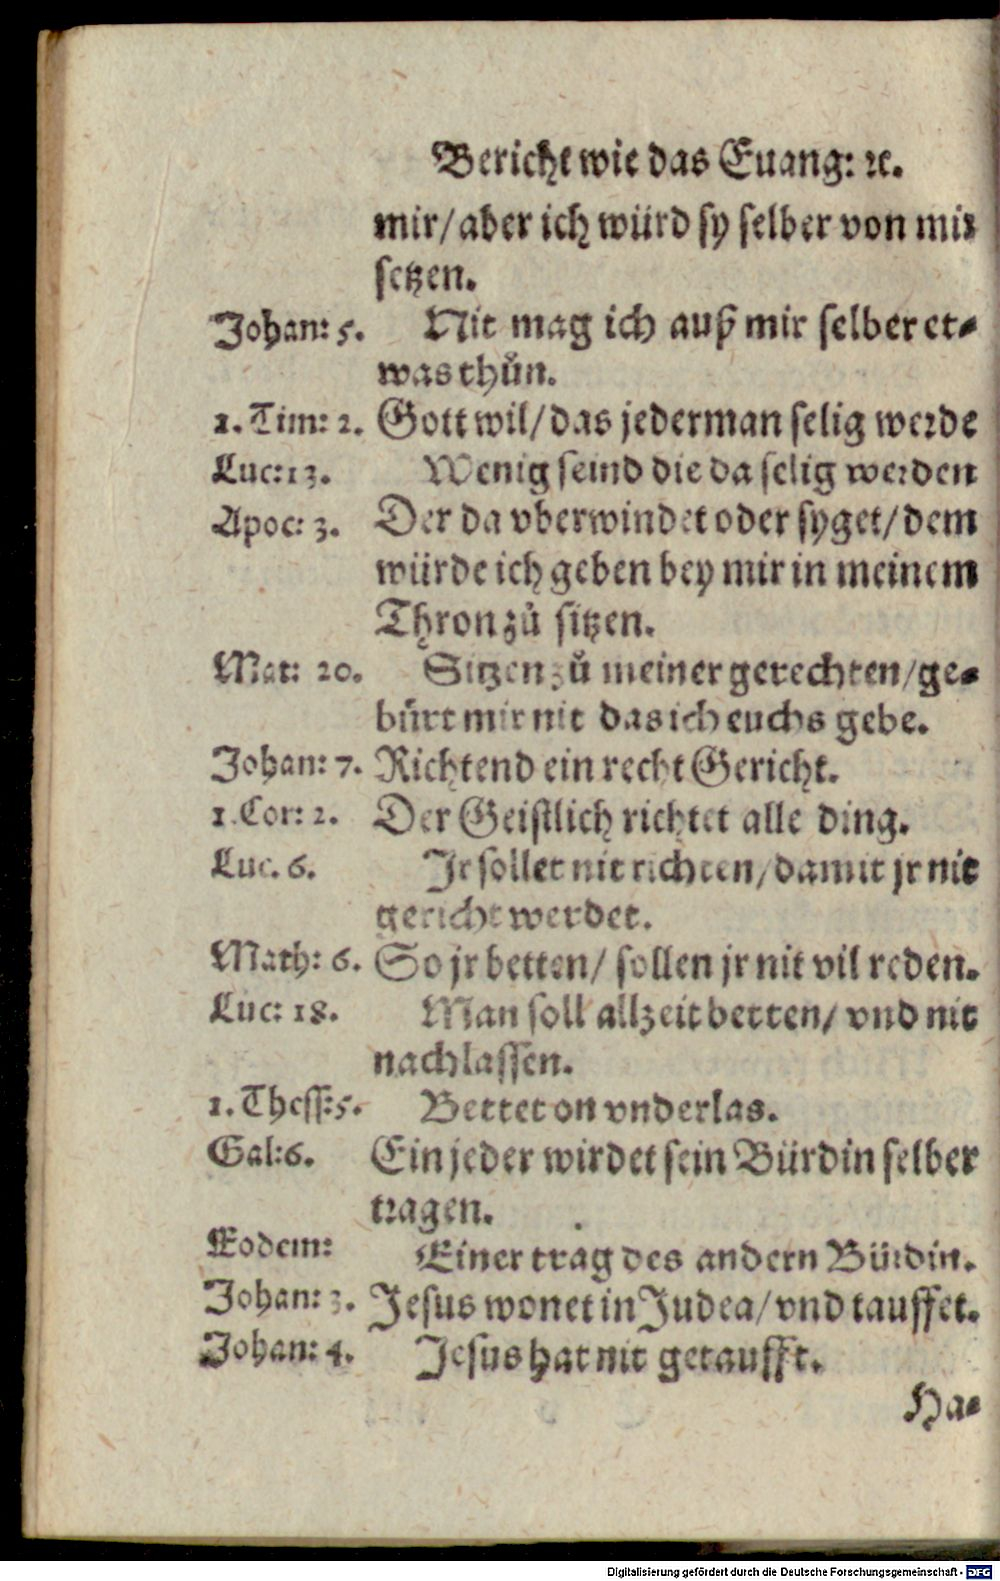 Bericht wie das Euang: ꝛc.
mir/ aber ich würd sy selber von mir
setzen.
Johan: 5. Nit mag ich auß mir selber et⸗
was thůn.
1. Tim: 2. Gott wil/ das jederman selig werde
Luc: 13. Wenig seind die da selig werden
Apoc: 3. Der da vberwindet oder syget/ dem
würde ich geben bey mir in meinem
Thron zů sitzen.
Mat: 20. Sitzen zů meiner gerechten/ ge⸗
bürt mir nit das ich euchs gebe.
Johan: 7. Richtend ein recht Gericht.
1. Cor: 2. Der Geistlich richtet alle ding.
Luc. 6. Jr sollet nit richten/ damit jr nit
gericht werdet.
Math: 6. So jr betten/ sollen jr nit vil reden.
Luc: 18. Man soll allzeit betten/ vnd nit
nachlassen.
1. Thess: 5. Bettet on vnderlas.
Gal: 6. Ein jeder wirdet sein Bürdin selber
tragen.
Eodem: Einer trag des andern Bürdin.
Johan: 3. Jesus wonet in Judea/ vnd tauffet.
Johan: 4. Jesus hat nit getaufft.
Ha⸗
Digitalisierung gefördert durch die Deutsche Forschungsgemeinschaft - DFG